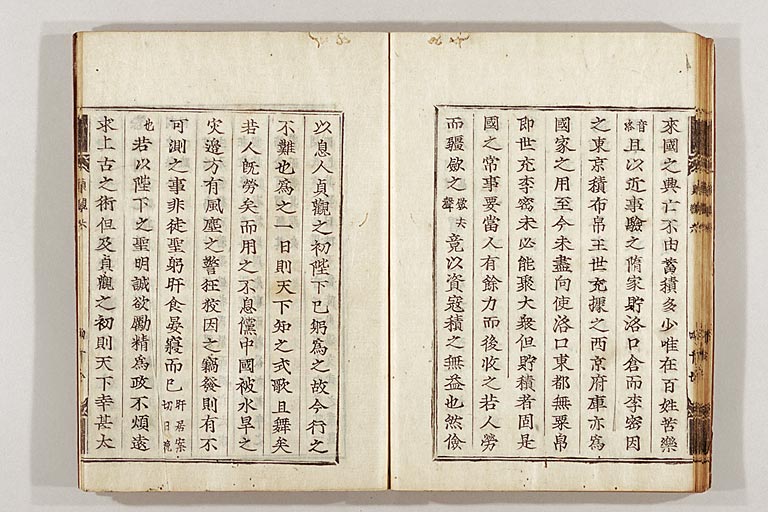 來國之興亡不由蓄積多少唯在百姓苦樂
音洛且以近事驗之隋家貯洛口倉而李密因
之東京積布帛王世充據之西京府庫亦爲
國家之用至今未盡向使洛口東都無粟帛
即世充李密未必能聚大衆但貯積者固是
國之常事要當人有餘力而後收之若人勞
而彊斂之斂去聲竟以資寇積之無益也然儉
以息人貞觀之初陛下已躬爲之故今行之
不難也爲之一日則天下知之式歌且舞矣
若人既勞矣而用之不息儻中國被水旱之
災邊方有風塵之警狂狡因之竊發則有不
可測之事非徒聖躬旰食晏寢而已旰居案切日晩
也若以陛下之聖明誠欲勵精爲政不煩遠
求上古之術但及貞觀之初則天下幸甚太